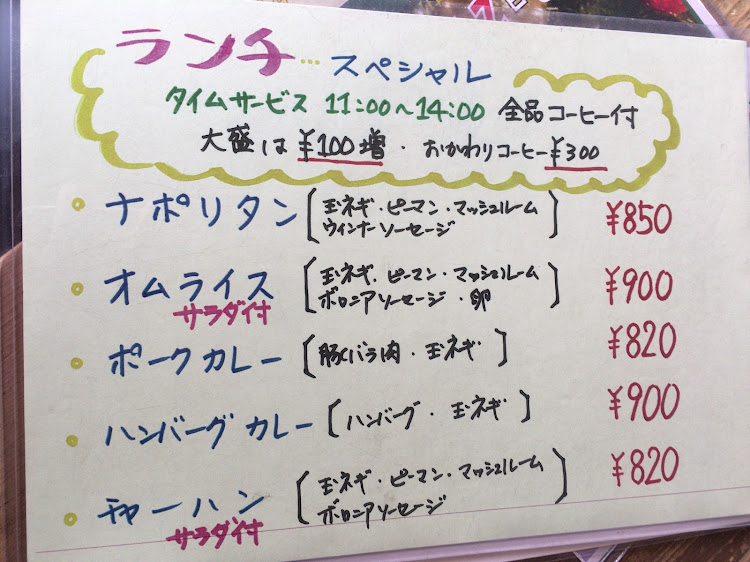 ランチ… スペシャル
タイムサービス 11:00〜14:00 全品コーヒー付
大盛は¥100増・おかわりコーヒー¥300
ナポリタン [玉ネギ・ピーマン・マッシュルーム ¥850
ウィンナーソーセージ]
オムライス [玉ネギ・ピーマン・マッシュルーム ¥900
サラダ付 ボロニアソーセージ・卵]
ポークカレー [豚バラ肉・玉ネギ] ¥820
ハンバーグカレー [ハンバーグ・玉ネギ] ¥900
チャーハン [玉ネギ・ピーマン・マッシュルーム ¥820
サラダ付 ボロニアソーセージ]